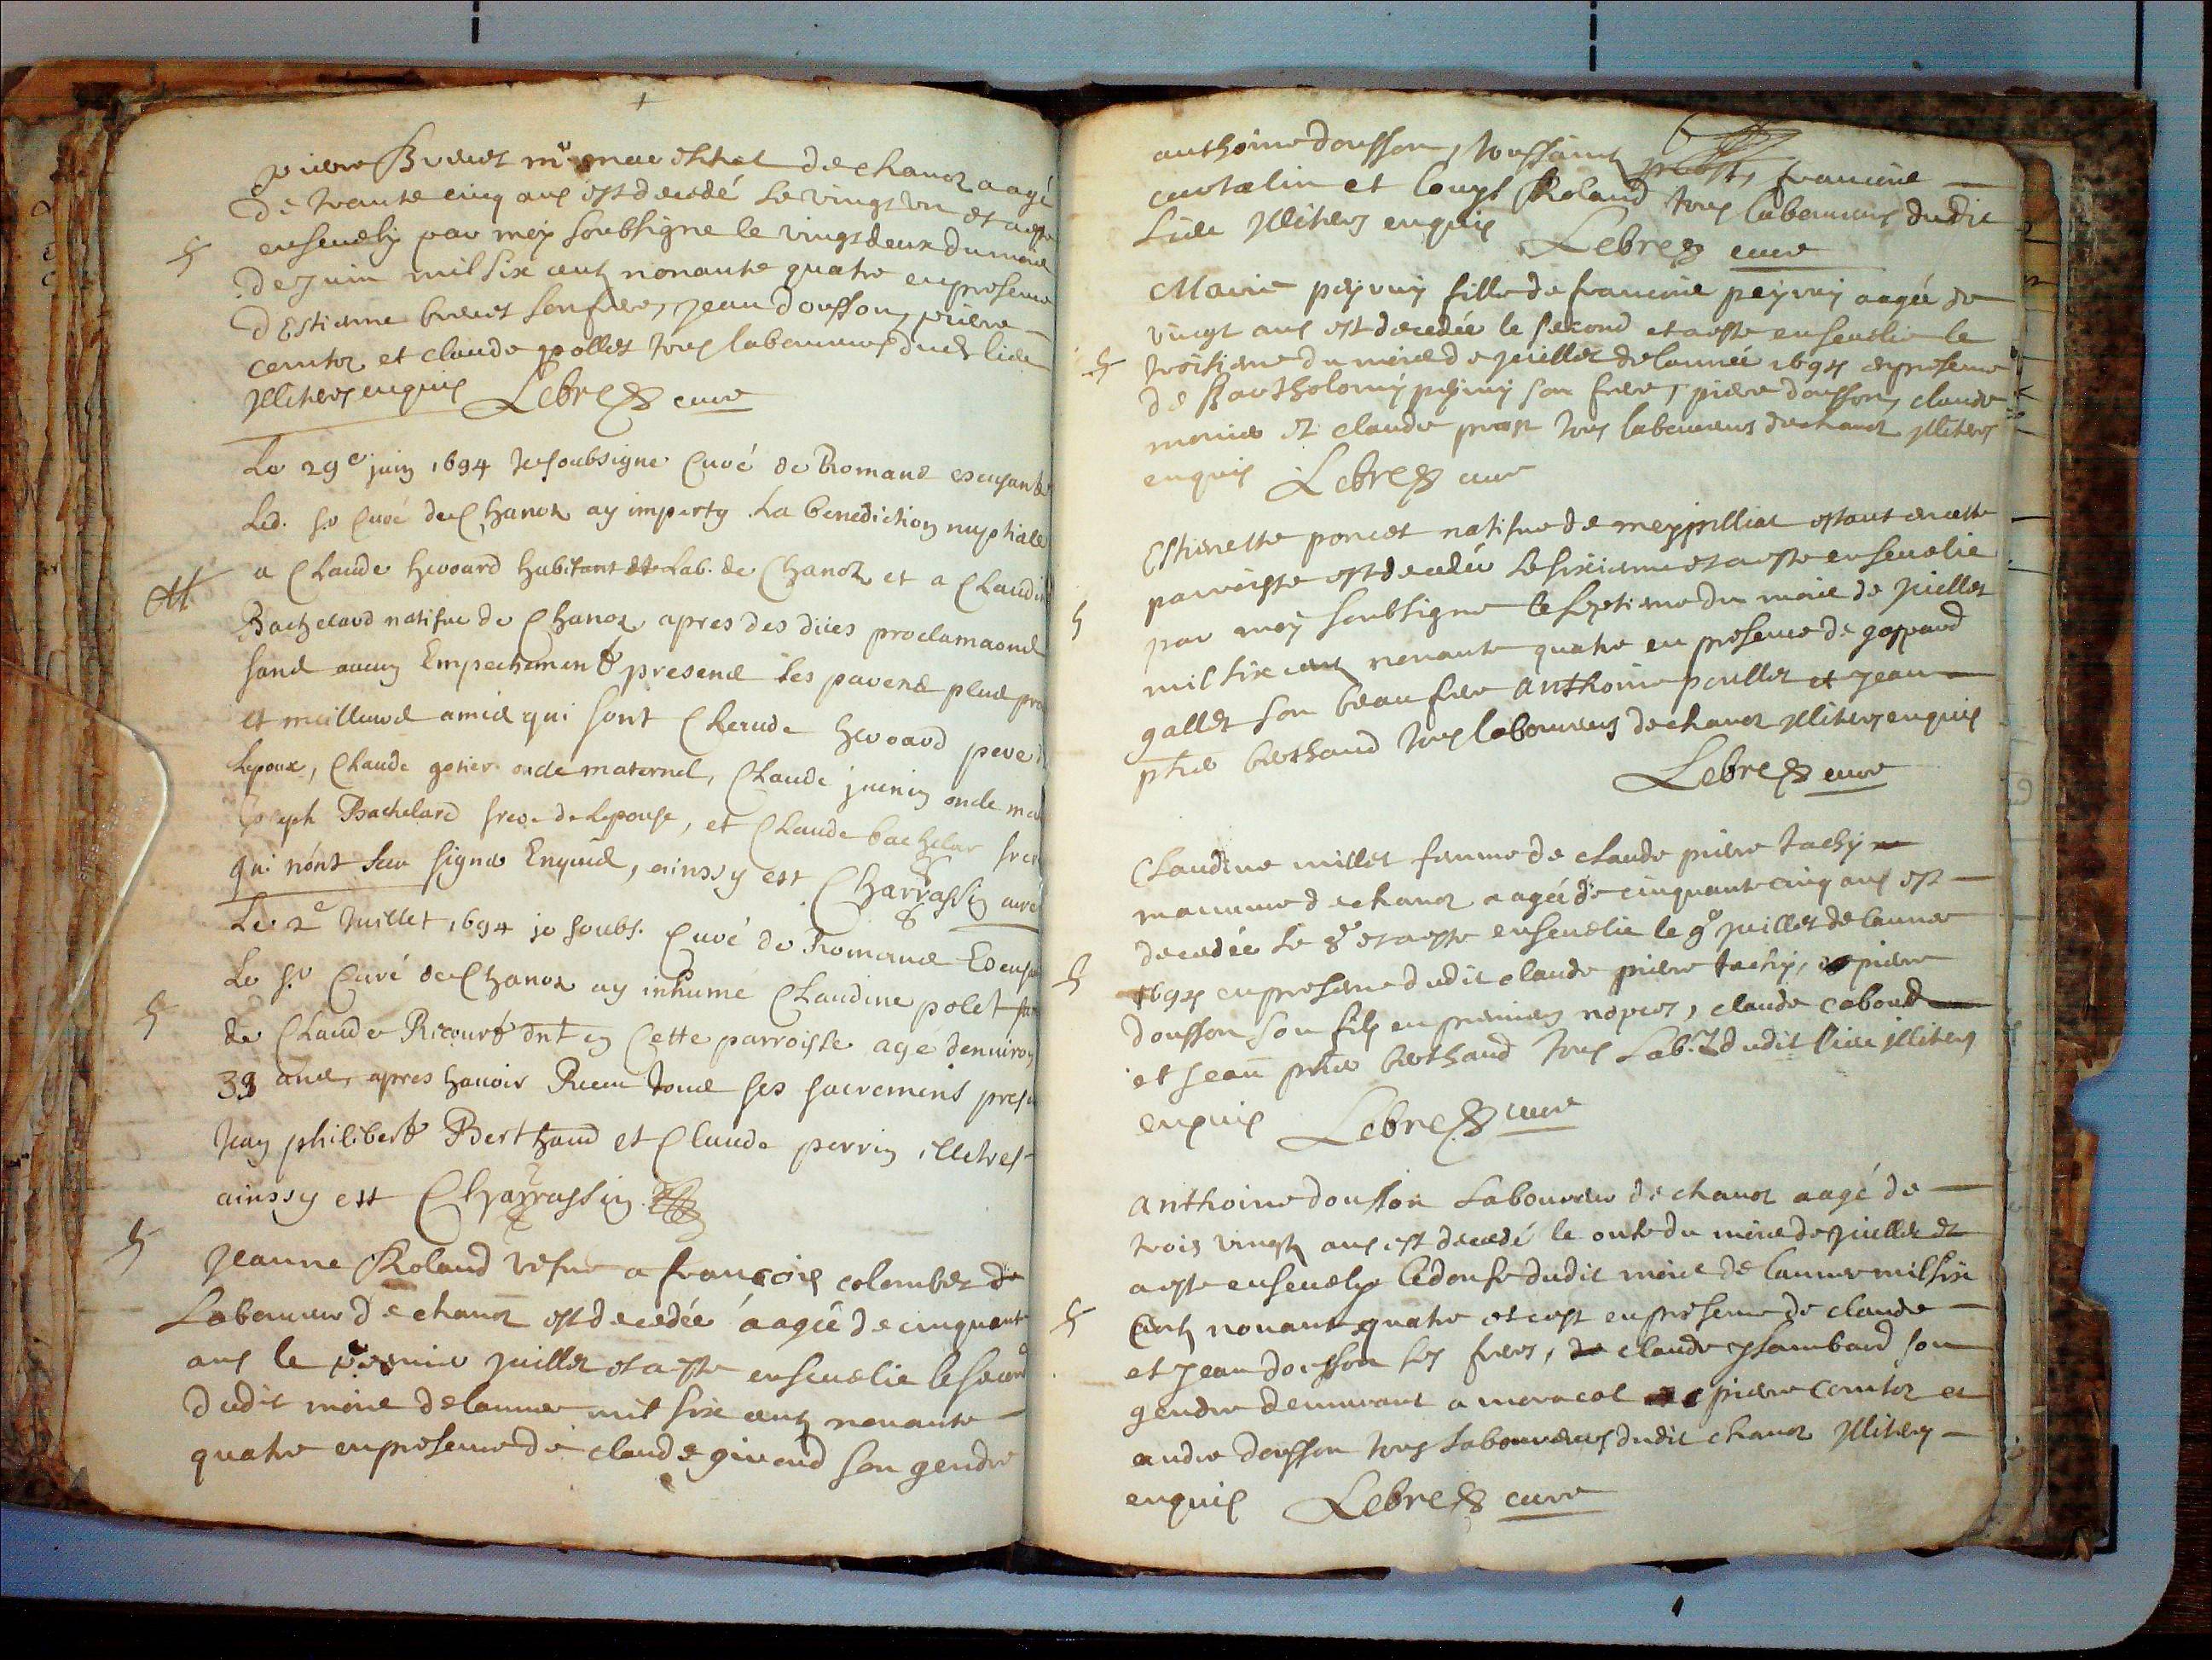 pierre Buret mr mareschal de chanoz aagé
de trante cinq ans est decedé le vingt un et a esté
ensevely par moy soubsigne le vingt deux du mois
de Juin mil six cent nonante quatre en presence
d'Estienne buret son frere, Jean dousson, pierre
comtoz et claude pollet tous laboureurs dudt lieu
Illiters enquis Lebrez cure
Le 29e juin 1694 Je soubsigne Curé de Romans escusant
Led. sr Curé de Chanoz ay imparty La benediction nuptiale
a Claude hevoard habitant Lab. de Chanoz et a Claudine
Bachelard natifve de Chanoz apres des dües proclamaons
sans aucun Empechement presens les parens plus pro
et meilleurs amis qui sont Claude hevoard pere d
Lepoux, Claude gotier oncle maternel, Claude juenin oncle mat
Joseph Bachelard frere de Lepouse, et Claude bachelar frer
qui nont sceu signer Enquis, ainssy est Charrassin curé
Le 2e Juillet 1694 je soubs. Curé de Romans Escusa
Le sr Curé de Chanoz ay inhumé Claudine polet fem
de Claude Ricourt dnt en Cette parroisse agé denviron
38 ans, apres havoir Receu tous ses sacremens prese
Jean philibert Berthaud et Claude perrin illetres
ainssy est Charrassin
Jeanne Roland vefve a françois colombet
Laboureur de chanoz est decedée áagée de cinquante
ans le premier juillet et a esté ensevelie le second
dudit mois de lannee mil six cent nonante
quatre en presence de claude giraud son gendre
anthoine dousson, toussaint prost, francois
cartalin et louys Roland tous laboureurs dudit
Lieu Illiters enquis Lebrez cure
Marie peyruy fille de francois peyruy aagée de
vingt ans est decedée le second et a esté ensevelie le
troisieme du mois de juillet de lannée 1694 en presence
de Bartholomy peyruy son frere, pierre dousson, claude
monier et claude prost tous laboureurs de chanoz Illiters
enquis Lebrez cure
Estienette poncet natifve de meyrilliat estant en cette
parroisse est decedée le sixieme et a esté ensevelie
par moy soubsigne le septieme du mois de juillet
mil six cent nonante quatre en presence de gaspard
gallet son beau frere anthoine poullet et jean
phle berthaud tous laboureurs de chanoz Illiters enquis
Lebrez cure
Claudine millet femme de claude pierre tachy
maneuvre de chanoz aagée de cinquante cinq ans est
decedée le 8e et a esté ensevelie le 9e juillet de lannee
1694 en presence dudit claude pierre tachy, pierre
dousson son fils en premiers nopces, claude caboud
et Jean phle berthaud tous Labrs dudit lieu illiters
enquis Lebrez cure
anthoine dousson Laboureur de chanoz aagé de
trois vingt ans est decedé le onze du mois de juillet et
a esté ensevely le douse dudit mois de lannee mil six
Cent nonante quatre et cest en presence de claude
et Jean dousson ses freres, claude Isambard son
gendre demeurant a pierre comtoz et
andre dousson tous Laboureurs dudit chanoz Illiters
enquis Lebrez cure